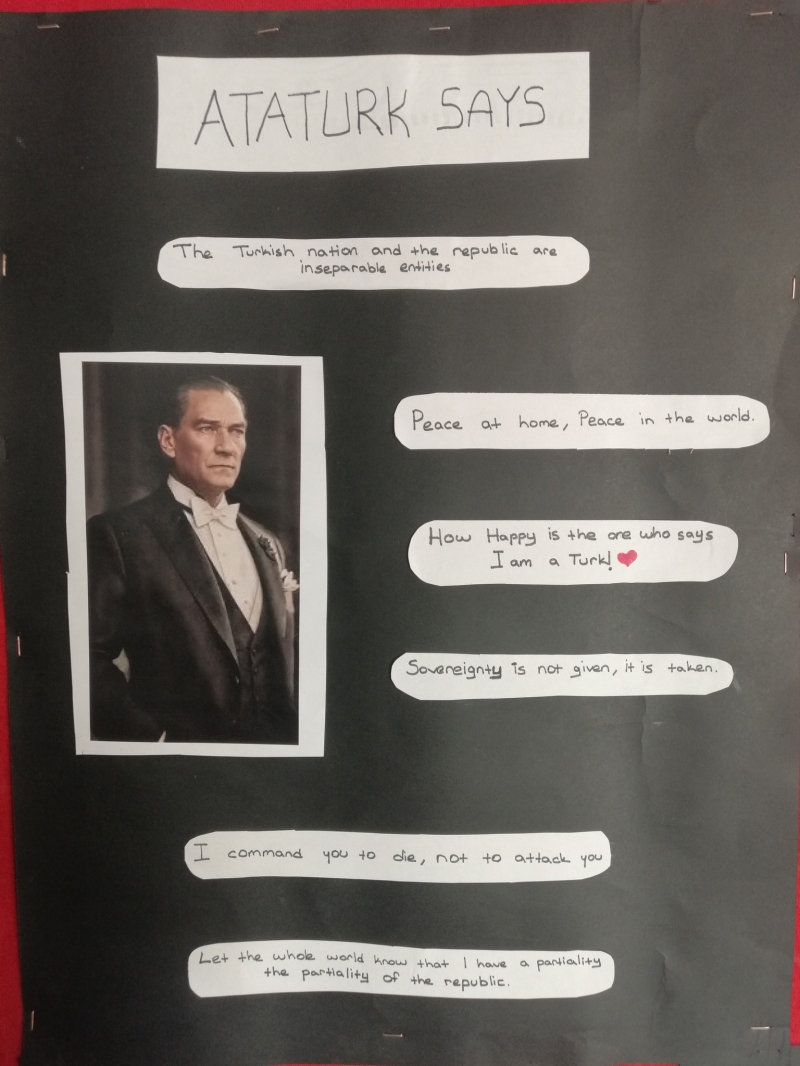 ATATURK SAYS
The Turkish nation and the republic are
inseparable entities
Peace at home, Peace in the world.
How Happy is the one who says
I am a Turk!
Sovereignty is not given, it is taken.
I command you to die, not to attack you
Let the whole world know that I have a partiality
the partiality of the republic.